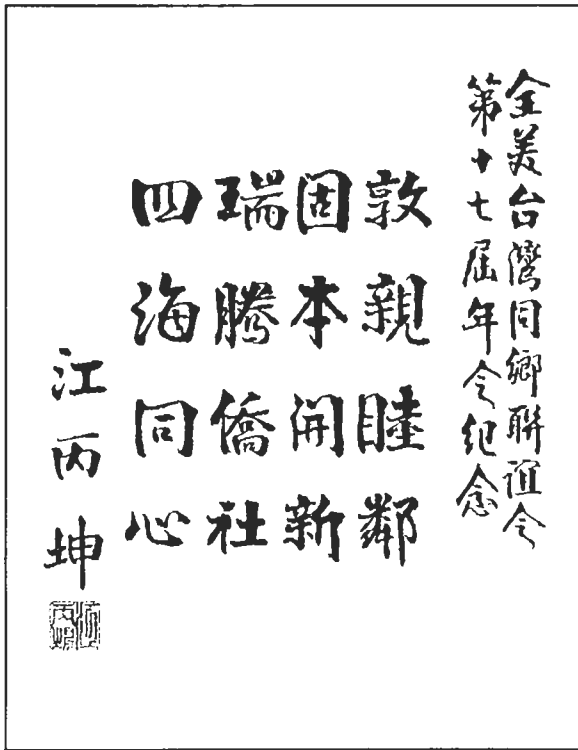 全美台灣同鄉聯誼会
第十七屆年会紀念
敦親睦鄰
固本開新
瑞騰僑社
四海同心
江丙坤
江丙坤